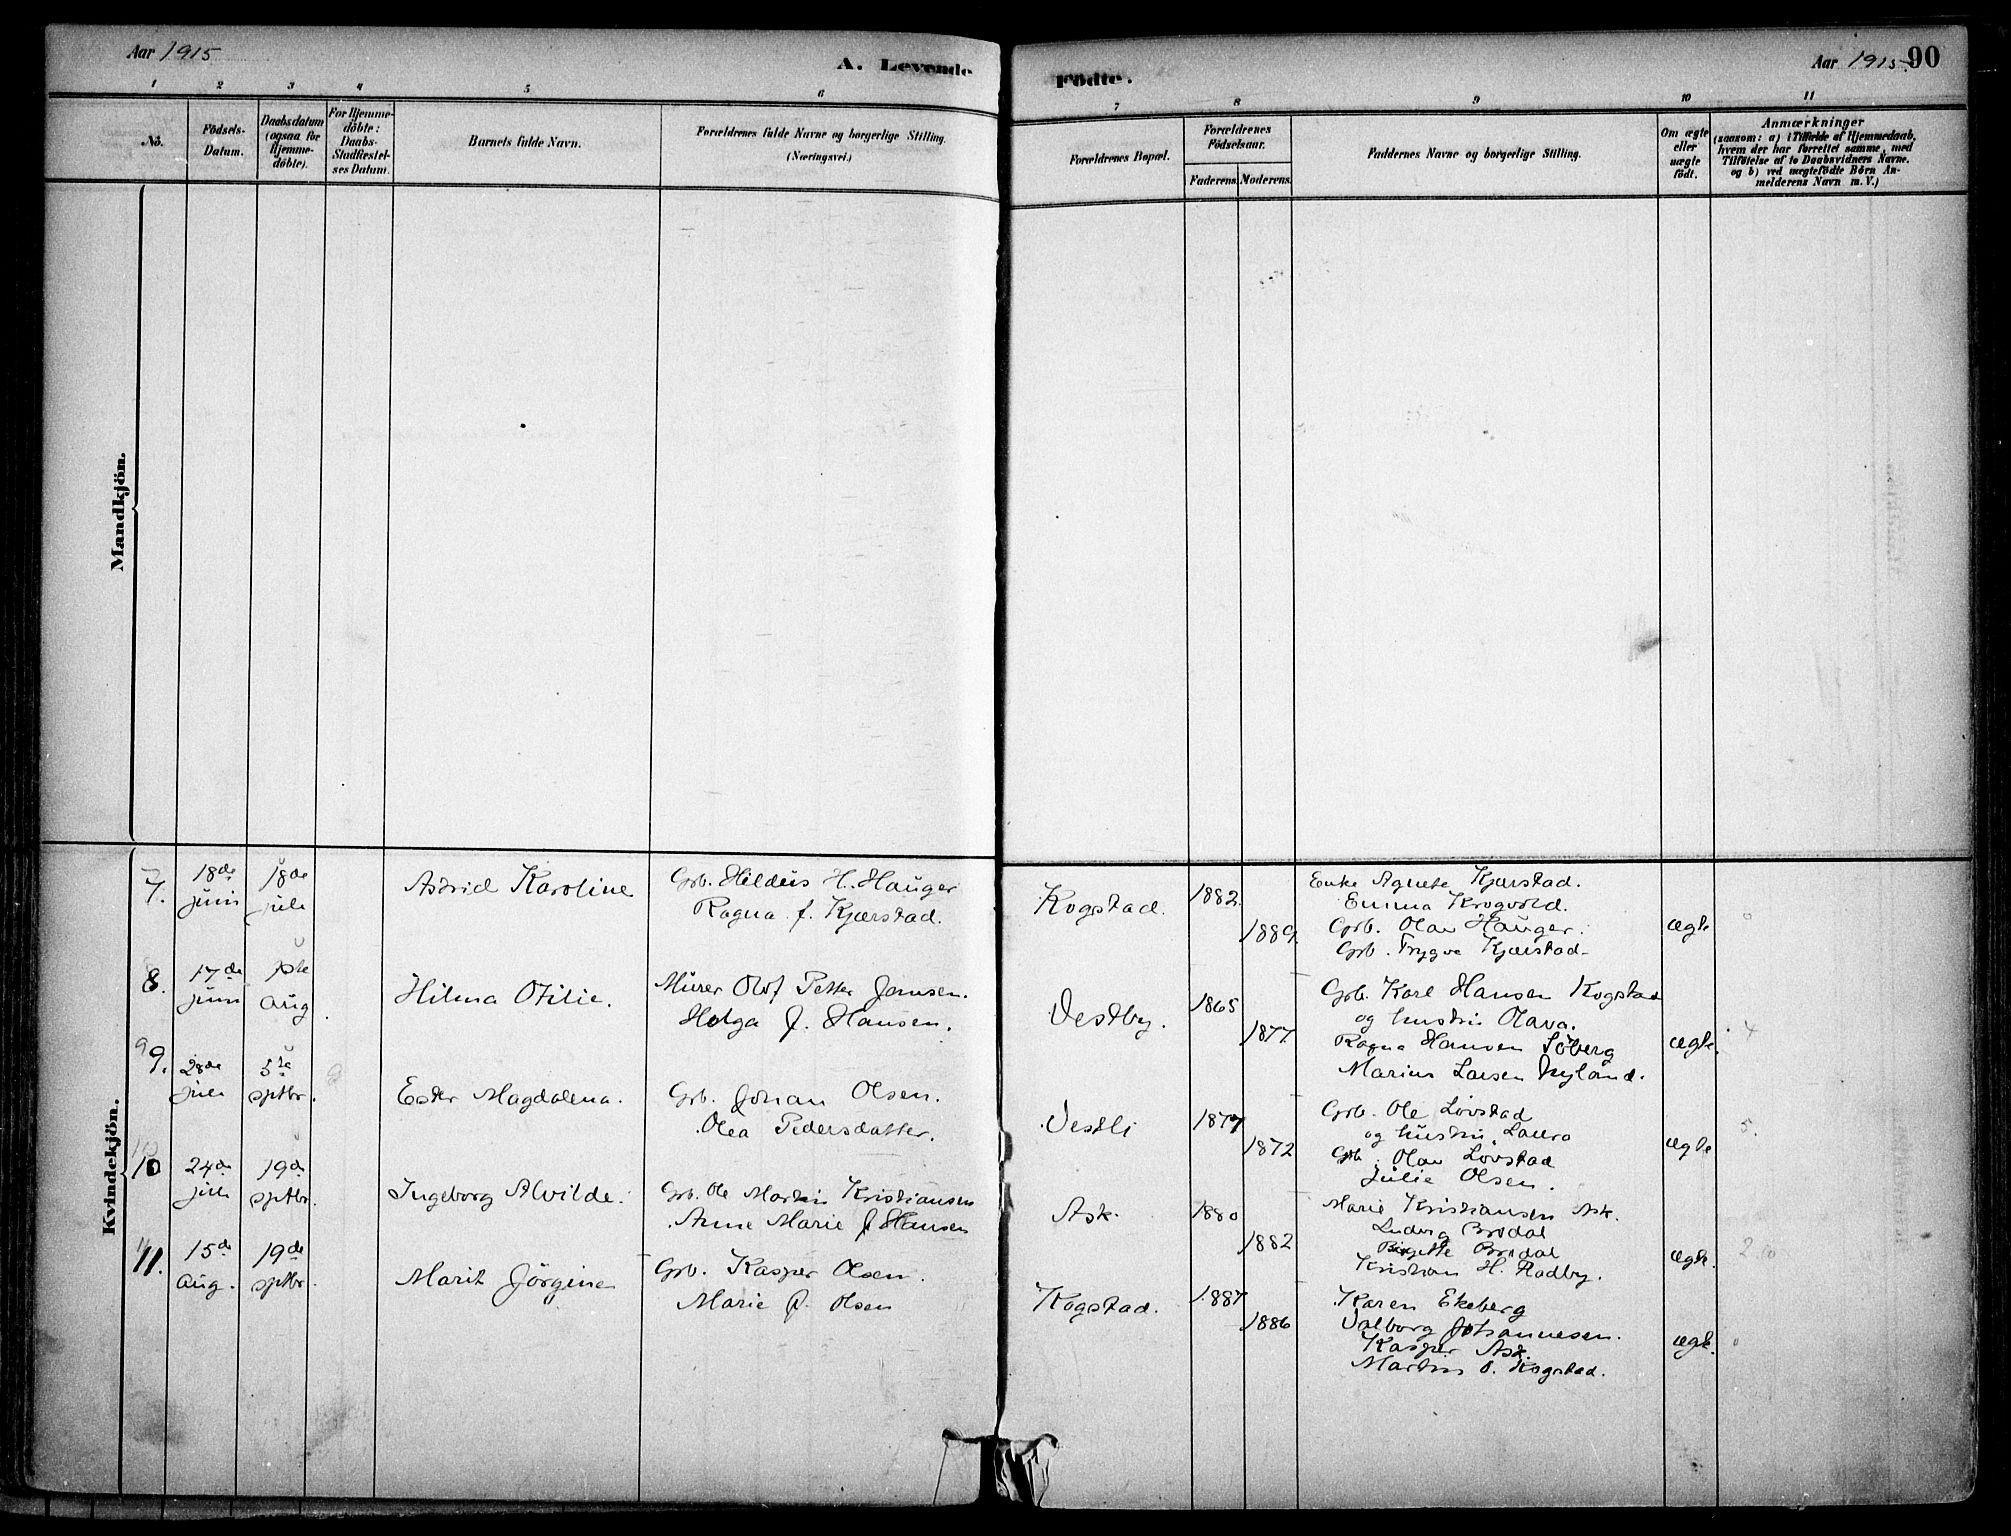 Aar 1915
A. Levende
Födte.
Aar 1915.
90
1 2 3 4 5 6
7 8 9 10 11
No.
Födsels-
Datum.
Daabsdatum
(ogsaa for
Hjemme-
döbte).
For Hjemme-
döbte:
Daabs-
Stadfæstel-
ses Datum.
Barnets fulde Navn.
Forældrenes fulde Navne og borgerlige Stilling.
(Næringsvei.)
Forældrenes Bopæl.
Forældrenes
Födselsaar.
Faderens. Moderens.
Faddernes Navne og borgerlige Stilling.
Om ægte
eller
uægte
födt.
Anmærkninger
(saasom: a) i Tilfælde af Hjemmedaab,
hvem der har forrettet samme, med
Tilföielse af to Daabsvidners Navne.
og b) ved uægtefödte Börn An-
melderens Navn m. V.)
Mandkjön.
Kvindekjön.
7.
18de
juni
18de
juli
Astrid Karoline
Grb. Hildus H. Hauger
Ragna f. Kjærstad.
Kogstad.
1882.
1889.
Enke Agnete Kjærstad.
Emma Krogvold.
Grb. Olav Hauger.
Grb. Trygve Kjærstad.
ægte
8.
17de
juni
1ste
aug.
Hilma Otilie.
Murer Olof Petter Jonsen.
Helga f. Hansen.
Vestby.
1865
1877
Grb. Karl Hansen Kogstad
og hustru Olava.
Ragna Hansen Söberg
Marius Larsen Nyland.
ægte.
4
9
9.
28de
juli
5te
sptbr.
Ester Magdalena.
Grb. Johan Olsen.
Olea Pedersdatter.
Vestli
1877
1872
Grb. Ole Lövstad
og hustru Laura
Grb. Olav Lövstad
Julie Olsen.
ægte
5.
10
10
24de
juli
19de
sptbr.
Ingeborg Alvilde.
Grb. Ole Martin Kristiansen
Anne Marie f. Hansen
Ask.
1880
1882
Marie Kristiansen Ask.
Ludvig Brodal
Birgitte Brodal
Kristian H. Rødby.
ægte.
2.10
11.
15de
aug.
19de
sptbr.
Marit Jörgine
Grb. Kasper Olsen.
Marie f. Olsen
Kogstad.
1887
1886
Karen Ekeberg
Valborg Johannesen.
Kasper Ask.
Martin O. Kogstad.
ægte.